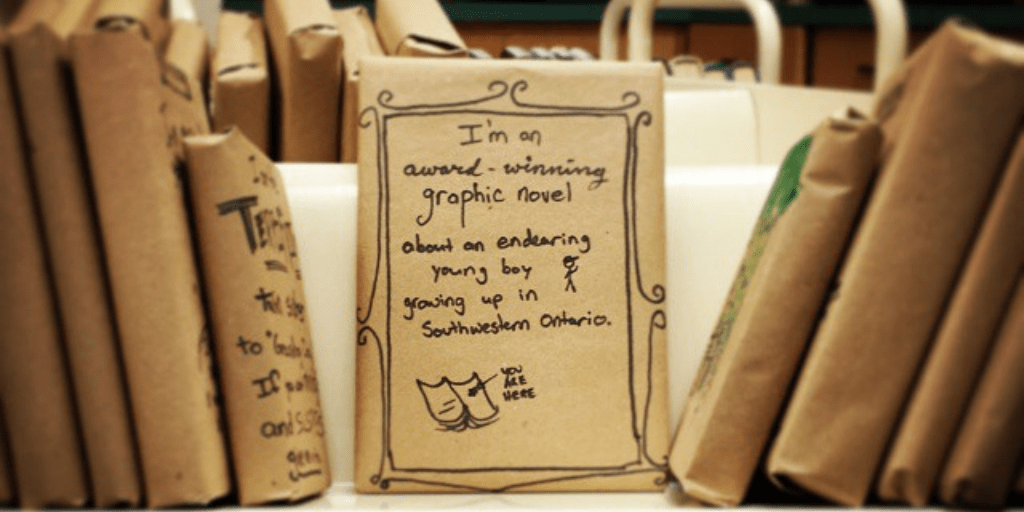 I'm an
award-winning
graphic novel
about an endearing
young boy
growing up in
Southwestern Ontario.
YOU
ARE
HERE
to
If
and